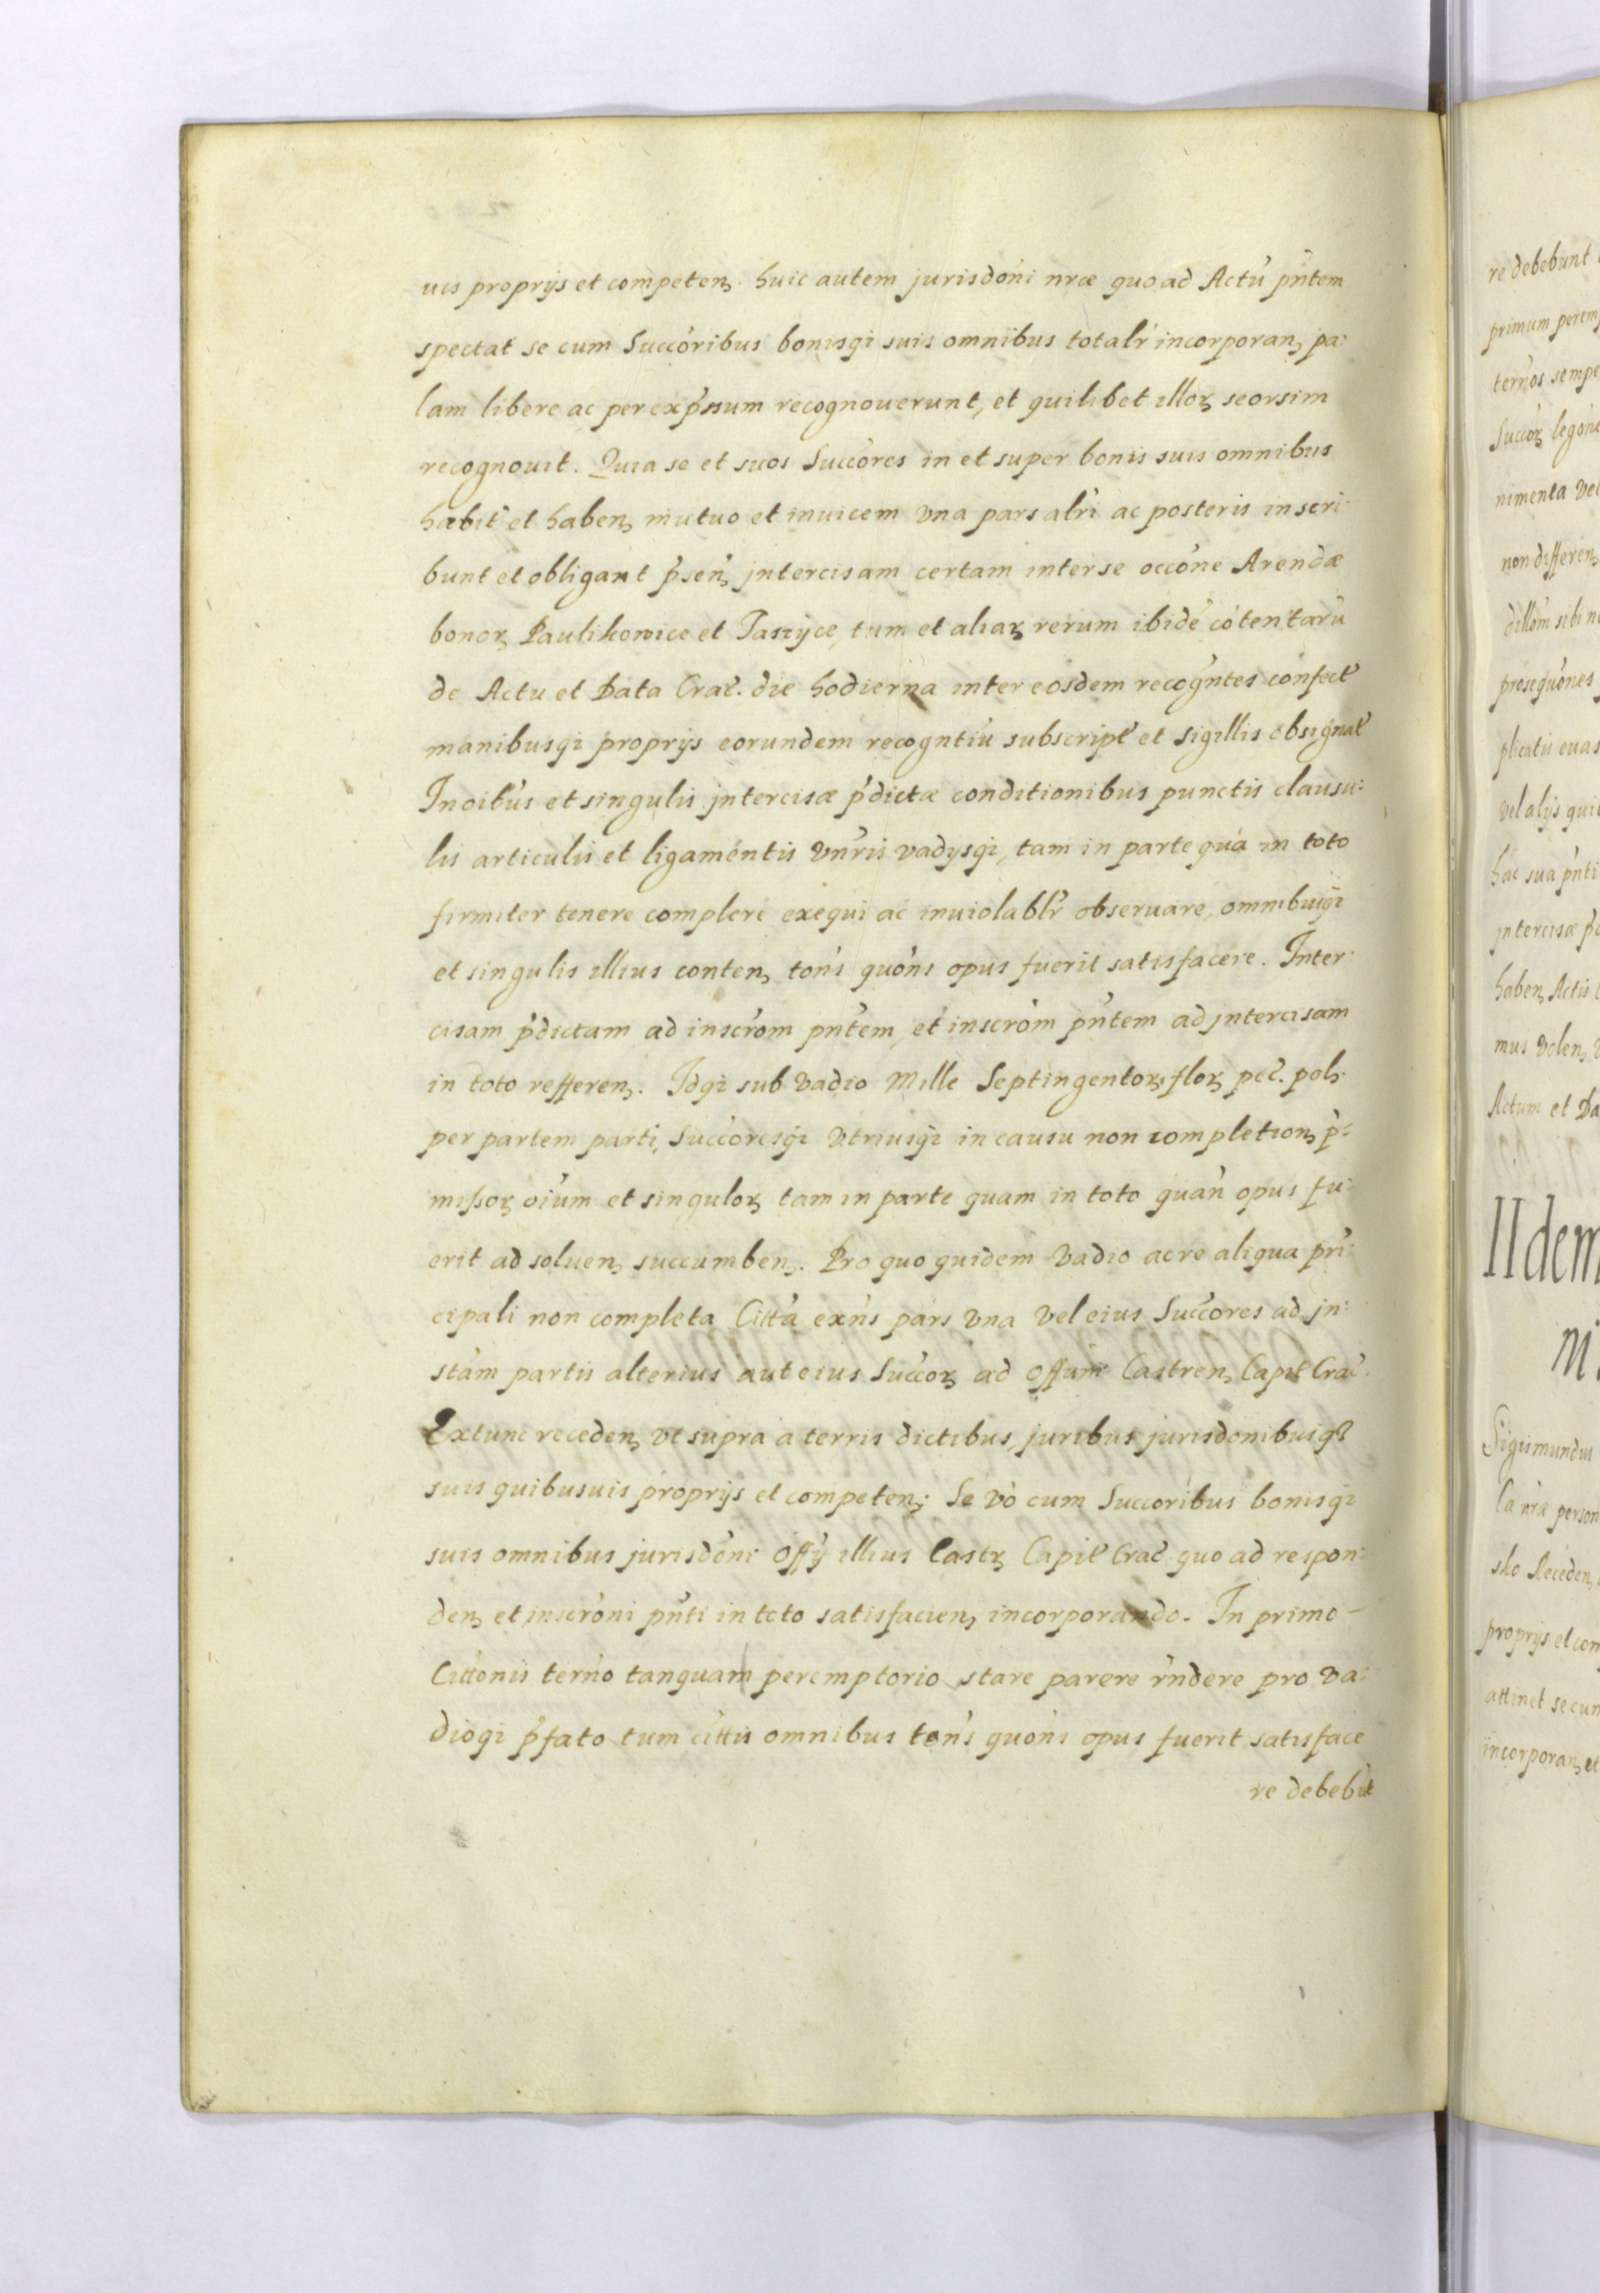 uis proprijs et competen. huic autem jurisdoni nræ quo ad Actu pntem
spectat se cum Succoribus bonisqi suis omnibus totalr incorporan, pa:
lam libere ac per expssum recognouerunt, et quilibet illoꝝ seorsim
recognouit. Quia se et suos Succores in et super bonis suis omnibus
habit et haben, mutuo et inuicem vna pars alri ac posteris inscri:
bunt et obligant psen, jntercisam certam inter se occone Arendæ
bonoꝝ Paulikowice et Taszyce, tum et aliaꝝ rerum ibide cotentaru
de Actu et Data Crac. die hodierna inter eosdem recogntes confect
manibusqi proprijs eorundem recogntiu subscript et sigillis obsignat
In oibus et singulis jntercisæ pdictæ conditionibus punctis clausu:
lis articulis et ligamentis vnris vadysqi, tam in parte qua in toto
firmiter tenere complere exequi ac inuiolablr obseruare, omnibusqi
et singulis illius conten, tons quons opus fuerit satisfacere. Inter:
cisam pdictam ad inscrom pntem, et inscrom pntem ad jntercisam
in toto refferen,. Idqi sub vadio Mille Septingentoꝝ, floꝝ pec. pol,.
per partem parti, Succoresqi vtriusqi in causu non completion, p:
missoꝝ oium et singuloꝝ tam in parte quam in toto quan opus fu:
erit ad soluen, succumben,. Pro quo quidem vadio ac re aliqua pri:
cipali non completa Citta exns pars vna vel eius Succores ad jn:
stam partis alterius aut eius Succoꝝ ad Offum Castren, Capit Crac.
Extunc receden, vt supra a terris dictibus, juribus jurisdonibusqꝫ
suis quibusuis proprijs et competen,; Se vo cum Succoribus bonisqi
suis omnibus jurisdoni Offy illius Castꝝ Capit Crac quo ad respon:
den, et jnscroni pnti in toto satisfacien, incorporando. In primo
Cittonis terno tanquam peremptorio stare parere rndere pro va:
dioqi pfato tum cittis omnibus tons quons opus fuerit satisface
re debebut
re debebunt
primum
ternos sempe
Succoꝝ
nimenta vel
non differen,
plicatis euas
vel alijs qui
hac sua pnti
jntercisæ
haben, Actis
mus volen,
Actum et Da
IIdem
Sigismundus
Ca nræ person
sko Receden,
proprijs et com
attinet se cum
incorporan, et